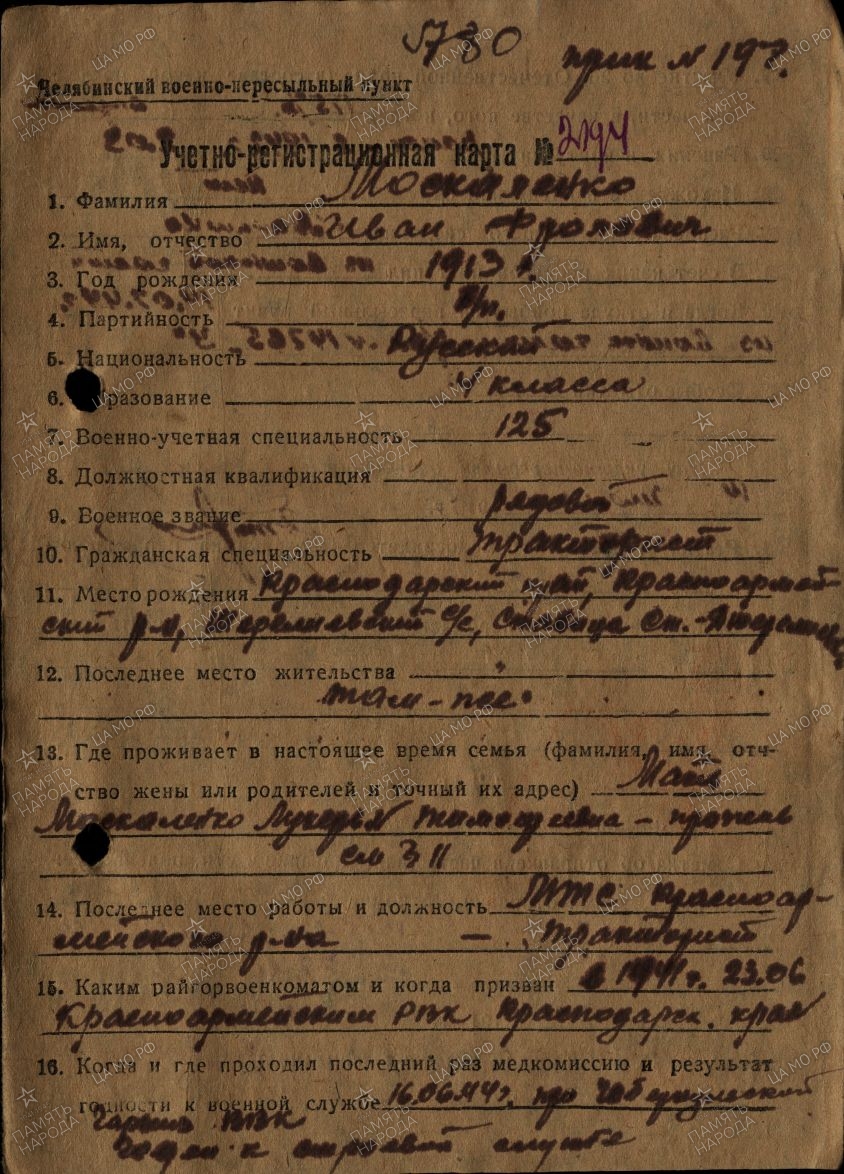 5730 прик № 197.
Челябинский военно-пересыльный пункт
Учетно-регистрационная карта № 2194
1. Фамилия Москаленко
2. Имя, отчество Иван Фролович
3. Год рождения 1913 г.
4. Партийность б/п.
5. Национальность Русский
6. разование 4 класса
7. Военно-учетная специальность 125
8. Должностная квалификация
9. Военное звание рядовой
10. Гражданская специальность тракторист
11. Место рождения Краснодарский край, Красноармей-
ский р-н, с/с, станица Ст.-
12. Последнее место жительства
там-же
13. Где проживает в настоящее время семья (фамилия, имя, отч-
ство жены или родителей и точный их адрес) Мать
Москаленко Лукерья Тимофеевна -
см 3 11
14. Последнее место работы и должность МТС Красноар-
мейского р-на — тракторист
15. Каким райгорвоенкоматом и когда призван в 1941 г. 23.06
Красноармейским РВК Краснодарск. края
16. Когда и где проходил последний раз медкомиссию и результат
годности к военной службе 16.06.44 г. при
ВВК
Годен к строевой службе